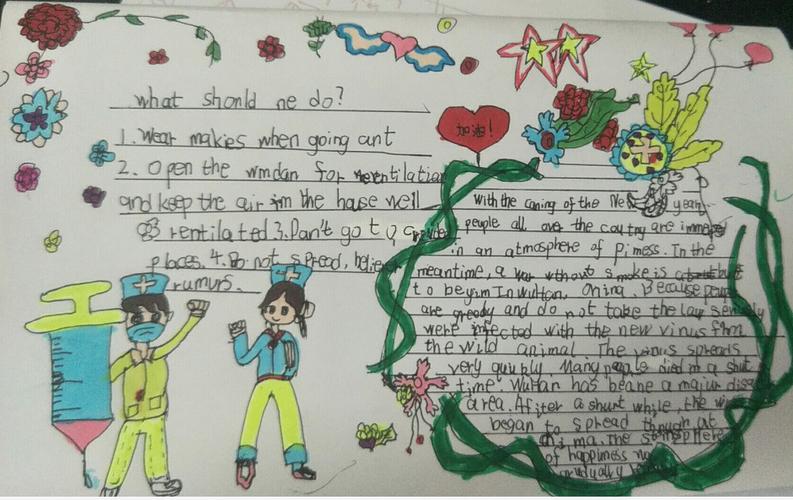 what should ne do?
1. Wear makies when going ant
2. Open the wmdan for ventilation
and keep the air im the hause well
rentilated 3. Dan't go to
places. 4. Do not spread, believe
rumurs.
加油!
With the caning of the New year
people all over the coutry are immersed
in an atmosphere of pimess. In the
meantime, a war without smoke is about
to begum In wuhan, China. Because people
are greedy and do not take the law seriously
were infected with the new virus from
the wild animal The virus spreads
very quickly. Many people died in a shut
time. Wuhan has beane a major disaster
area. Afiter a shurt while, the virus
began to spread through at
china. The
of happimess
gradually